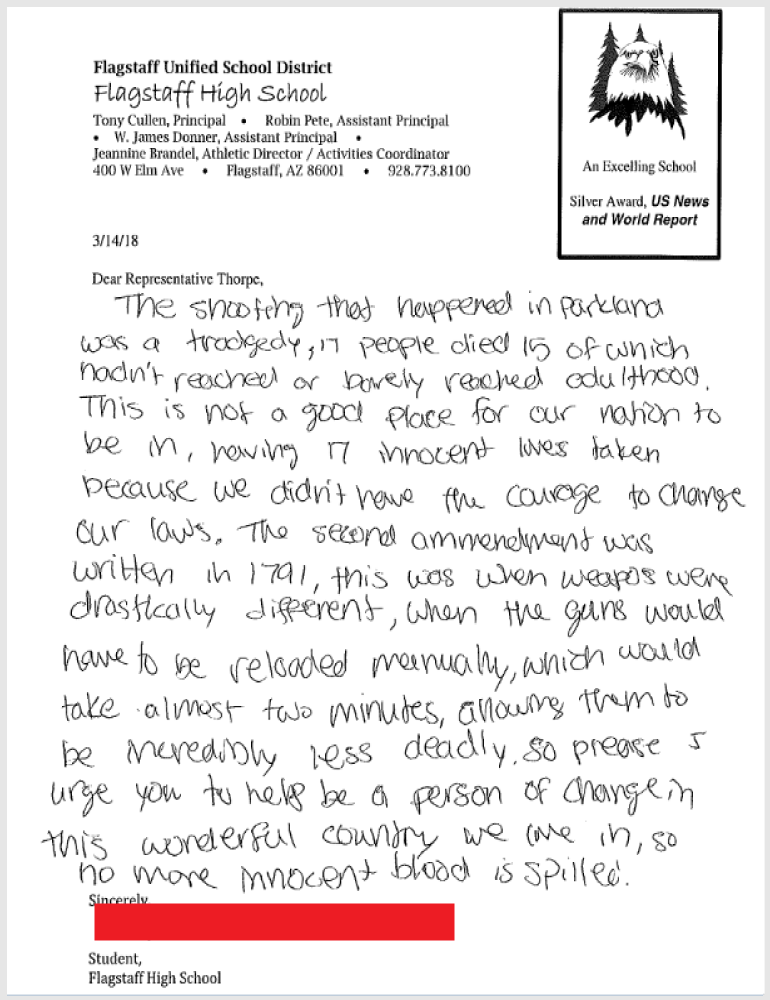 Flagstaff Unified School District
Flagstaff High School
Tony Cullen, Principal • Robin Pete, Assistant Principal
• W. James Donner, Assistant Principal •
Jeannine Brandel, Athletic Director / Activities Coordinator
400 W Elm Ave • Flagstaff, AZ 86001 • 928.773.8100
An Excelling School
Silver Award, US News
and World Report
3/14/18
Dear Representative Thorpe,
The shooting that happened in parkland
was a tradgedy, 17 people died 15 of which
hadn't reached or barely reached adulthood.
This is not a good place for our nation to
be in, having 17 innocent lives taken
because we didn't have the courage to change
our laws. The second ammendment was
written in 1791, this was when weapos were
drastically different, when the guns would
have to be reloaded manually, which would
take almost two minutes, allowing them to
be incredibly less deadly. So please I
urge you to help be a person of change in
this wonderful country we live in, so
no more innocent blood is spilled.
Sincerely,
Student,
Flagstaff High School